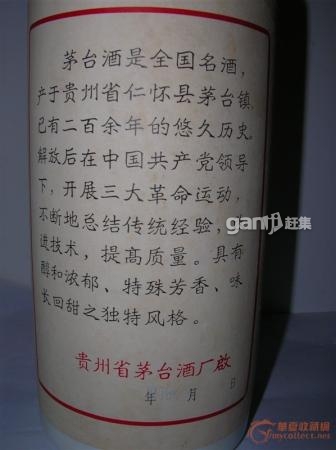 茅台酒是全国名酒,
产于贵州省仁怀县茅台镇,
已有二百余年的悠久历史。
解放后在中国共产党领导
下,开展三大革命运动,
不断地总结传统经验,
进技术,提高质量。具有
醇和浓郁、特殊芳香、味
长回甜之独特风格。
贵州省茅台酒厂啟
年 月 日
ganji 赶集
華夏收藏網
mycollect.net